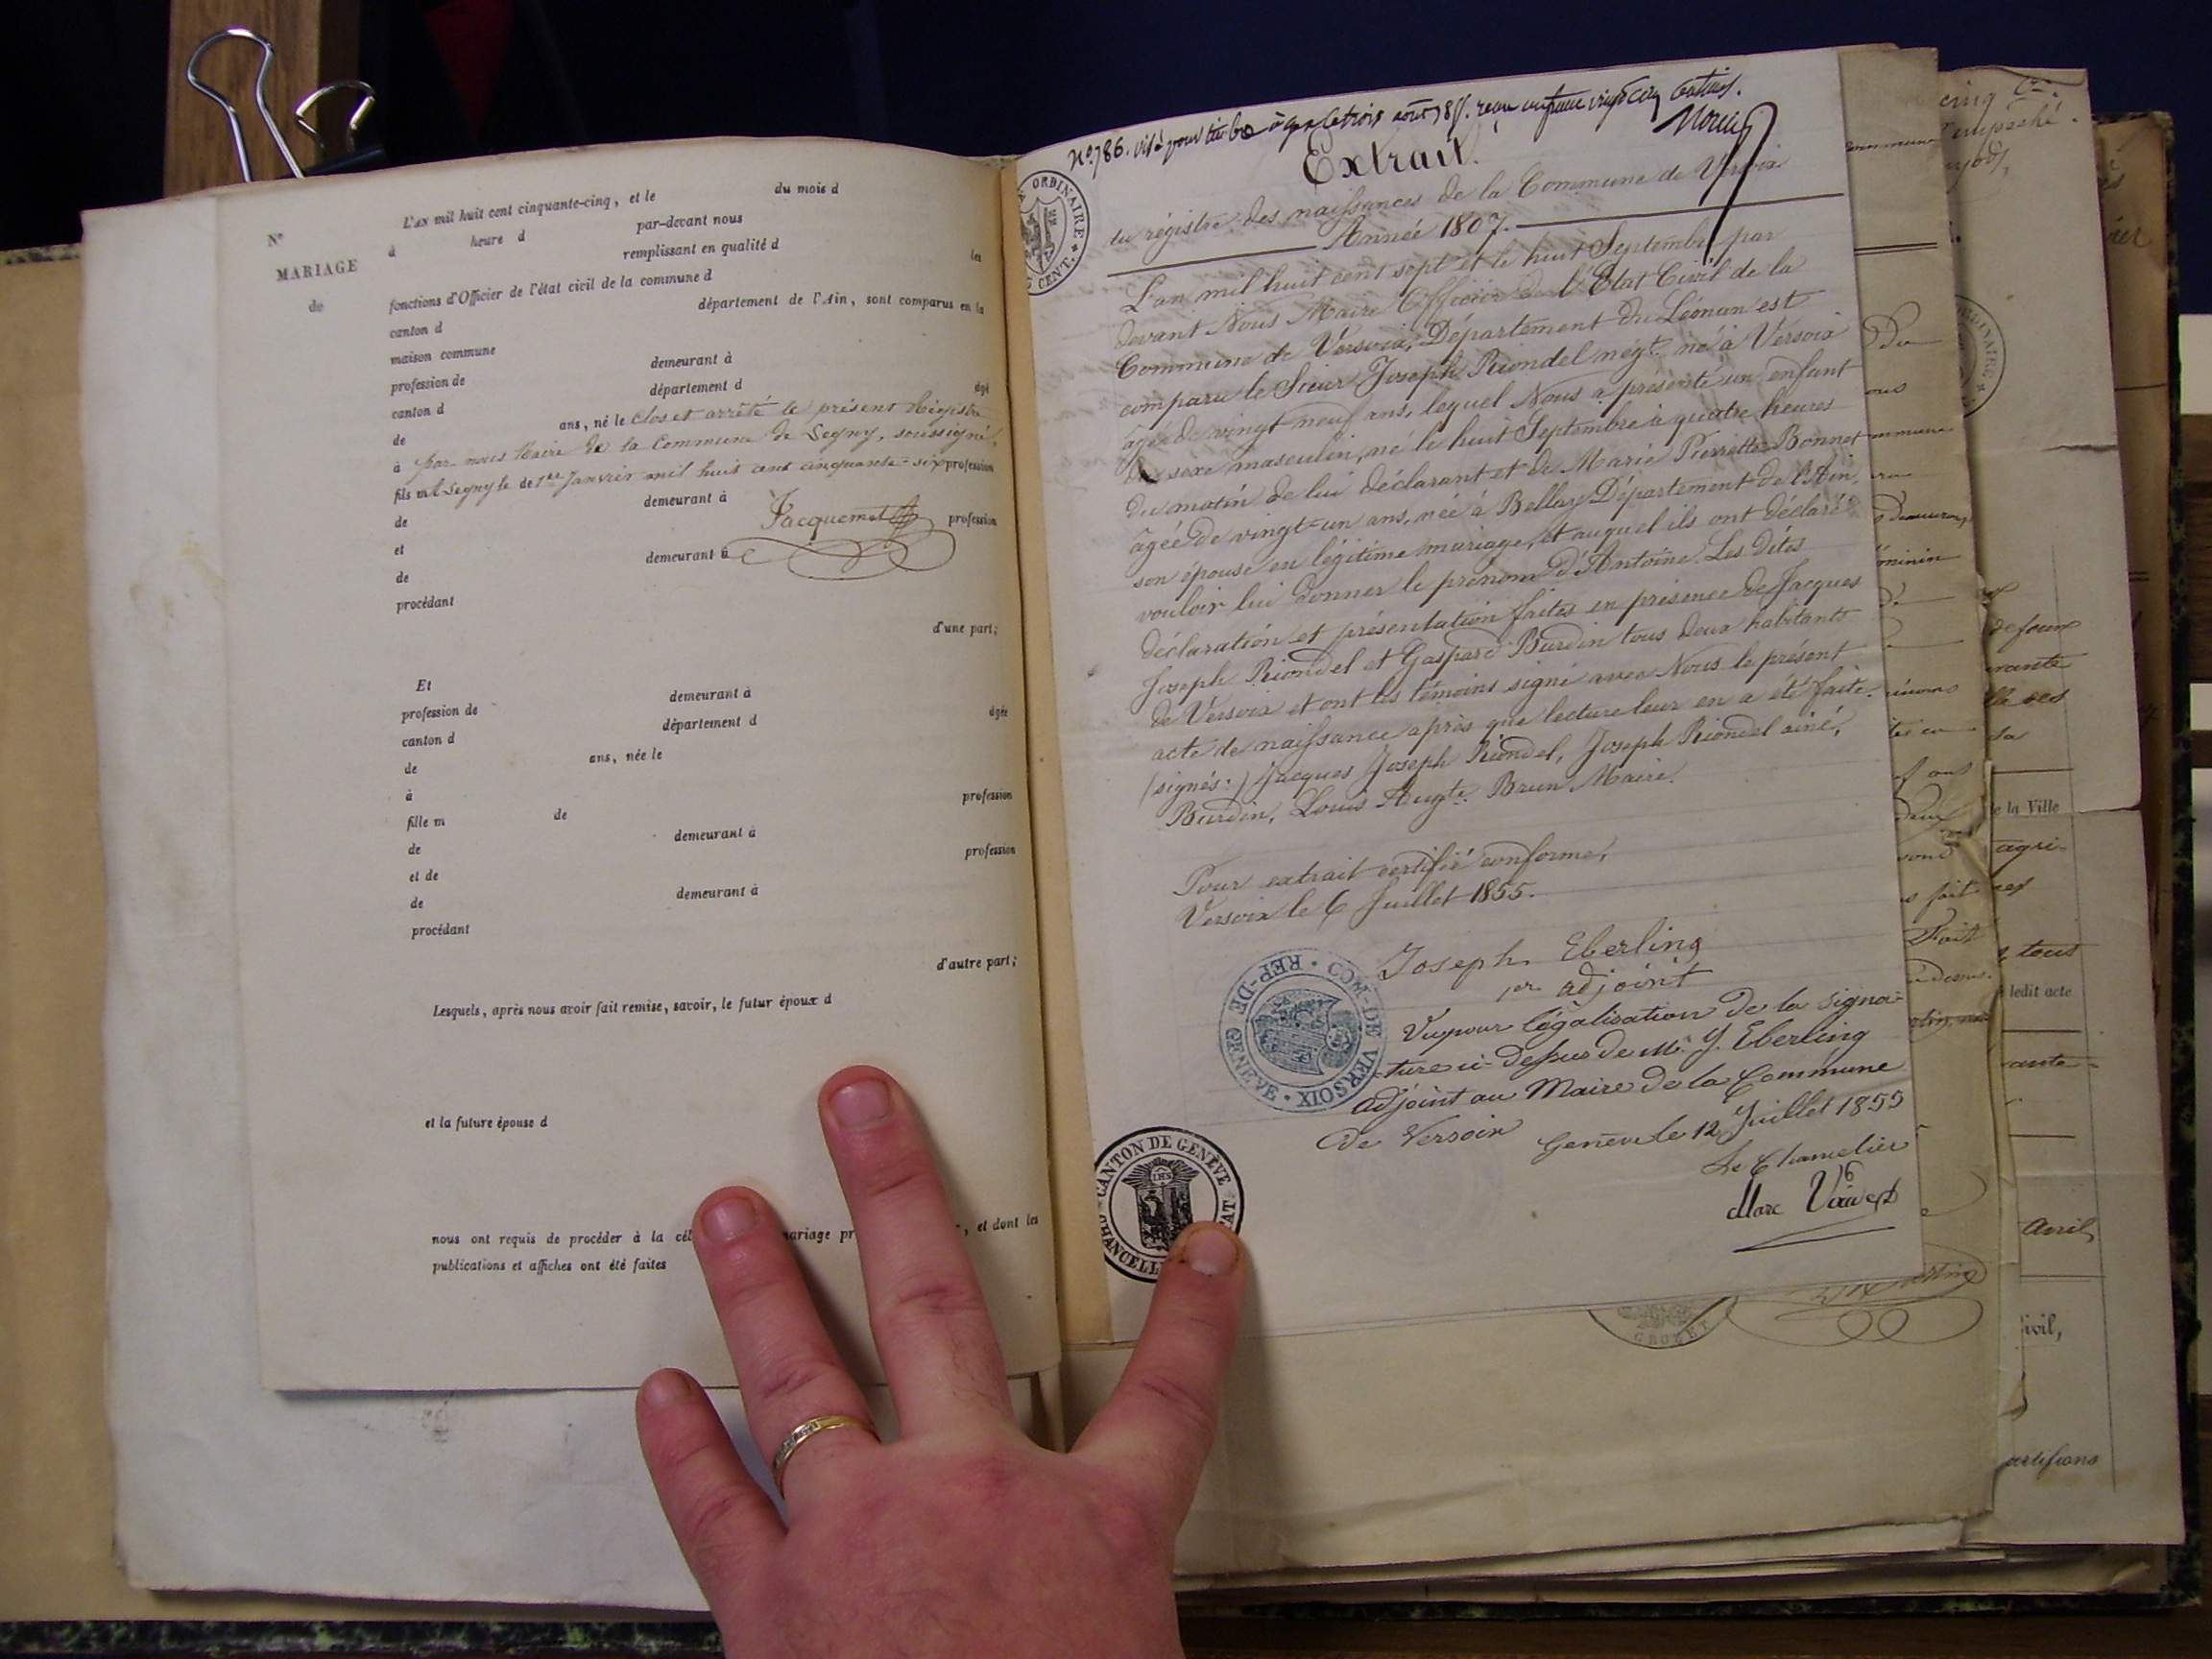 L'AN mil huit cent cinquante-cinq, et le du mois d
N° d heure d par-devant nous
MARIAGE remplissant en qualité d les
de fonctions d'Officier de l'état civil de la commune d
canton d département de l'Ain, sont comparus en la
maison commune
profession de demeurant à
canton d département d âgé
de ans, né le Clos et arrêté le présent Régistre
à par nous Maire de la Commune de Segny, soussigné,
fils m A Segny le de 1er Janvier mil huit cent cinquante-six profession
de demeurant à
et Jacquemet profession
de demeurant à
procédant
d'une part;
Et
profession de demeurant à
canton d département d âgée
de ans, née le
à
fille m de profession
de demeurant à
et de profession
de demeurant à
procédant
d'autre part;
Lesquels, après nous avoir fait remise, savoir, le futur époux d
et la future épouse d
nous ont requis de procéder à la cél mariage pr , et dont les
publications et affiches ont été faites
N° 786. visé pour timbre à gex le trois août 1855. reçu un franc vingt cinq centimes.
Extrait.
ORDINAIRE
CENT.
du régistre des naissances de la Commune de Versoix
Année 1807.
L'an mil huit cent sept et le huit Septembre par
devant Nous Maire Officier de l'Etat Civil de la
Commune de Versoix, Département du Léman est
comparu le Sieur Joseph Riondel négt. né à Versoix
âgé de vingt neuf ans, lequel Nous a présenté un enfant
du sexe masculin, né le huit Septembre à quatre heures
du matin de lui déclarant et de Marie Pierrette Bonnet
âgée de vingt-un ans, née à Bellay Département de l'Ain,
son épouse en légitime mariage, et auquel ils ont déclaré
vouloir lui donner le prénom d'Antoine. Les dites
déclaration et présentation faites en présence de Jacques
Joseph Riondel et Gaspard Burdin tous deux habitants
de Versoix et ont les témoins signé avec Nous le présent
acte de naissance après que lecture leur en a été faite.
(signés:) Jacques Joseph Riondel, Joseph Riondel ainé,
Burdin, Louis Augte. Brun Maire.
Pour extrait certifié conforme,
Versoix le 6 Juillet 1855.
Joseph Eberling
1er adjoint
COM-DE VERSOIX · REP-DE GENEVE ·
Vu pour légalisation de la signa-
ture ci-dessus de Mr. J. Eberling
adjoint au Maire de la Commune
de Versoix Genève le 12 Juillet 1855
Le Chancelier
Marc
CANTON DE GENÈVE
IHS
GROZET
de la Ville
agri-
tous
ledit acte
Avril
ivil,
certifions